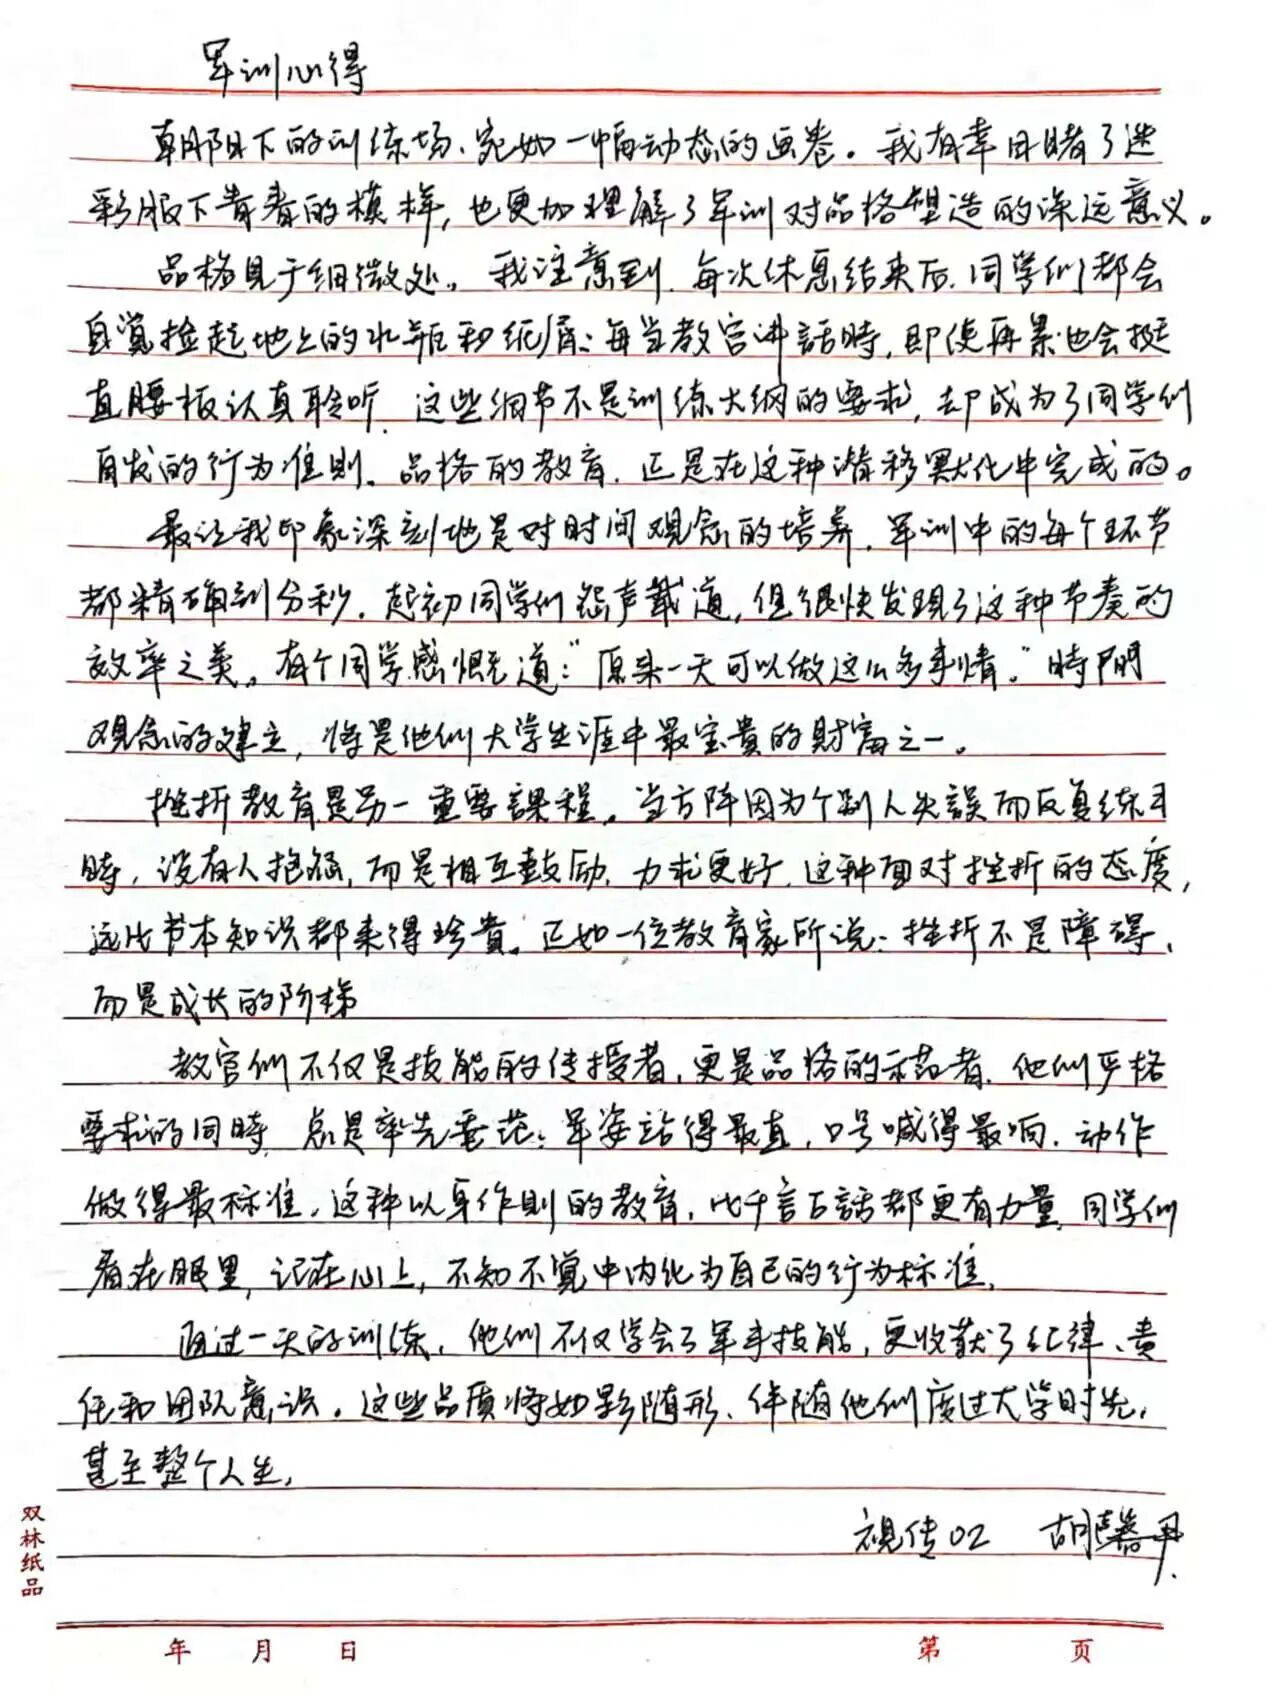 军训心得
朝阳下的训练场、宛如一幅动态的画卷。我有幸目睹了迷
彩服下青春的模样，也更加理解了军训对品格塑造的深远意义。
品格见于细微处。我注意到，每次休息结束后，同学们都会
自觉捡起地上的水瓶和纸屑；每当教官讲話時，即使再累也会挺
直腰板认真聆听．这些细节不是训练大纲的要求，却成为了同学们
自发的行为准則。品格的教育．正是在这种潜移默化中完成的。
最让我印象深刻地是对时间观念的培养．军训中的每个环节
都精确到分秒．起初同学们怨声载道，但很快发现了这种节奏的
效率之美。有个同学感慨道：“原来一天可以做这么多事情。”時間
观念的建立，将是他们大学生涯中最宝贵的財富之一。
挫折教育是另一重要課程。当方阵因为个别人失誤而反复练习
時，没有人抱怨，而是相互鼓励．力求更好．这种面对挫折的态度，
远比书本知识都来得珍貴。正如一位教育家所说：挫折不是障碍、
而是成长的阶梯
教官们不仅是技能的传授者，更是品格的示范者．他们严格
要求的同時，总是率先垂范：军姿站得最直，口号喊得最响．动作
做得最标准．这种以身作則的教育，比千言万話都更有力量，同学们
看在眼里，记在心上，不知不覚中内化为自己的行为标准．
通过一天的训练．他们不仅学会了军事技能，更收获了纪律、责
任和团队意识．这些品质将如影随形、伴随他们度过大学时光，
甚至整个人生．
视传02 胡馨丹
双林纸品
年 月 日 第 页